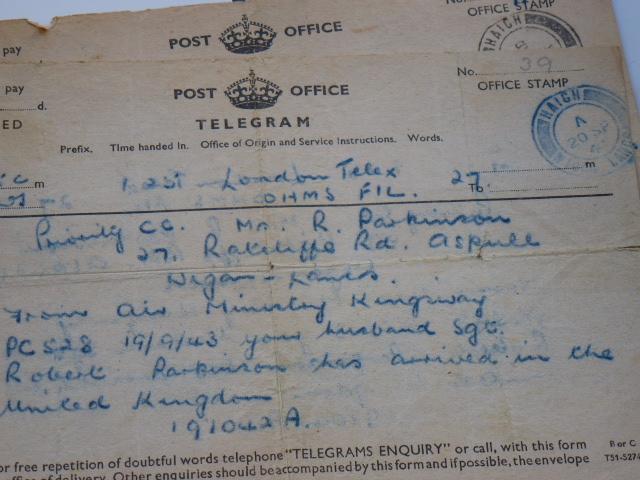 No.
OFFICE STAMP
pay
POST OFFICE
THAIGH
pay
POST OFFICE
No. 39
OFFICE STAMP
d.
TELEGRAM
Prefix. Time handed in. Office of Origin and Service Instructions. Words.
THAIGH
A
20 SP
m 1.231 London Telex 27 m
OHMS FIL. To
Priority CC. Mr. R. Parkinson
27. Ratcliffe Rd. Aspull
Wigan - Lancs.
From Air Ministry Kingsway
PC528 19/9/43 your husband Sgt.
Robert Parkinson has arrived in the
United Kingdom
191042 A.
or free repetition of doubtful words telephone "TELEGRAMS ENQUIRY" or call, with this form
office of delivery. Other enquiries should be accompanied by this form and if possible, the envelope
B or C
T51-5274